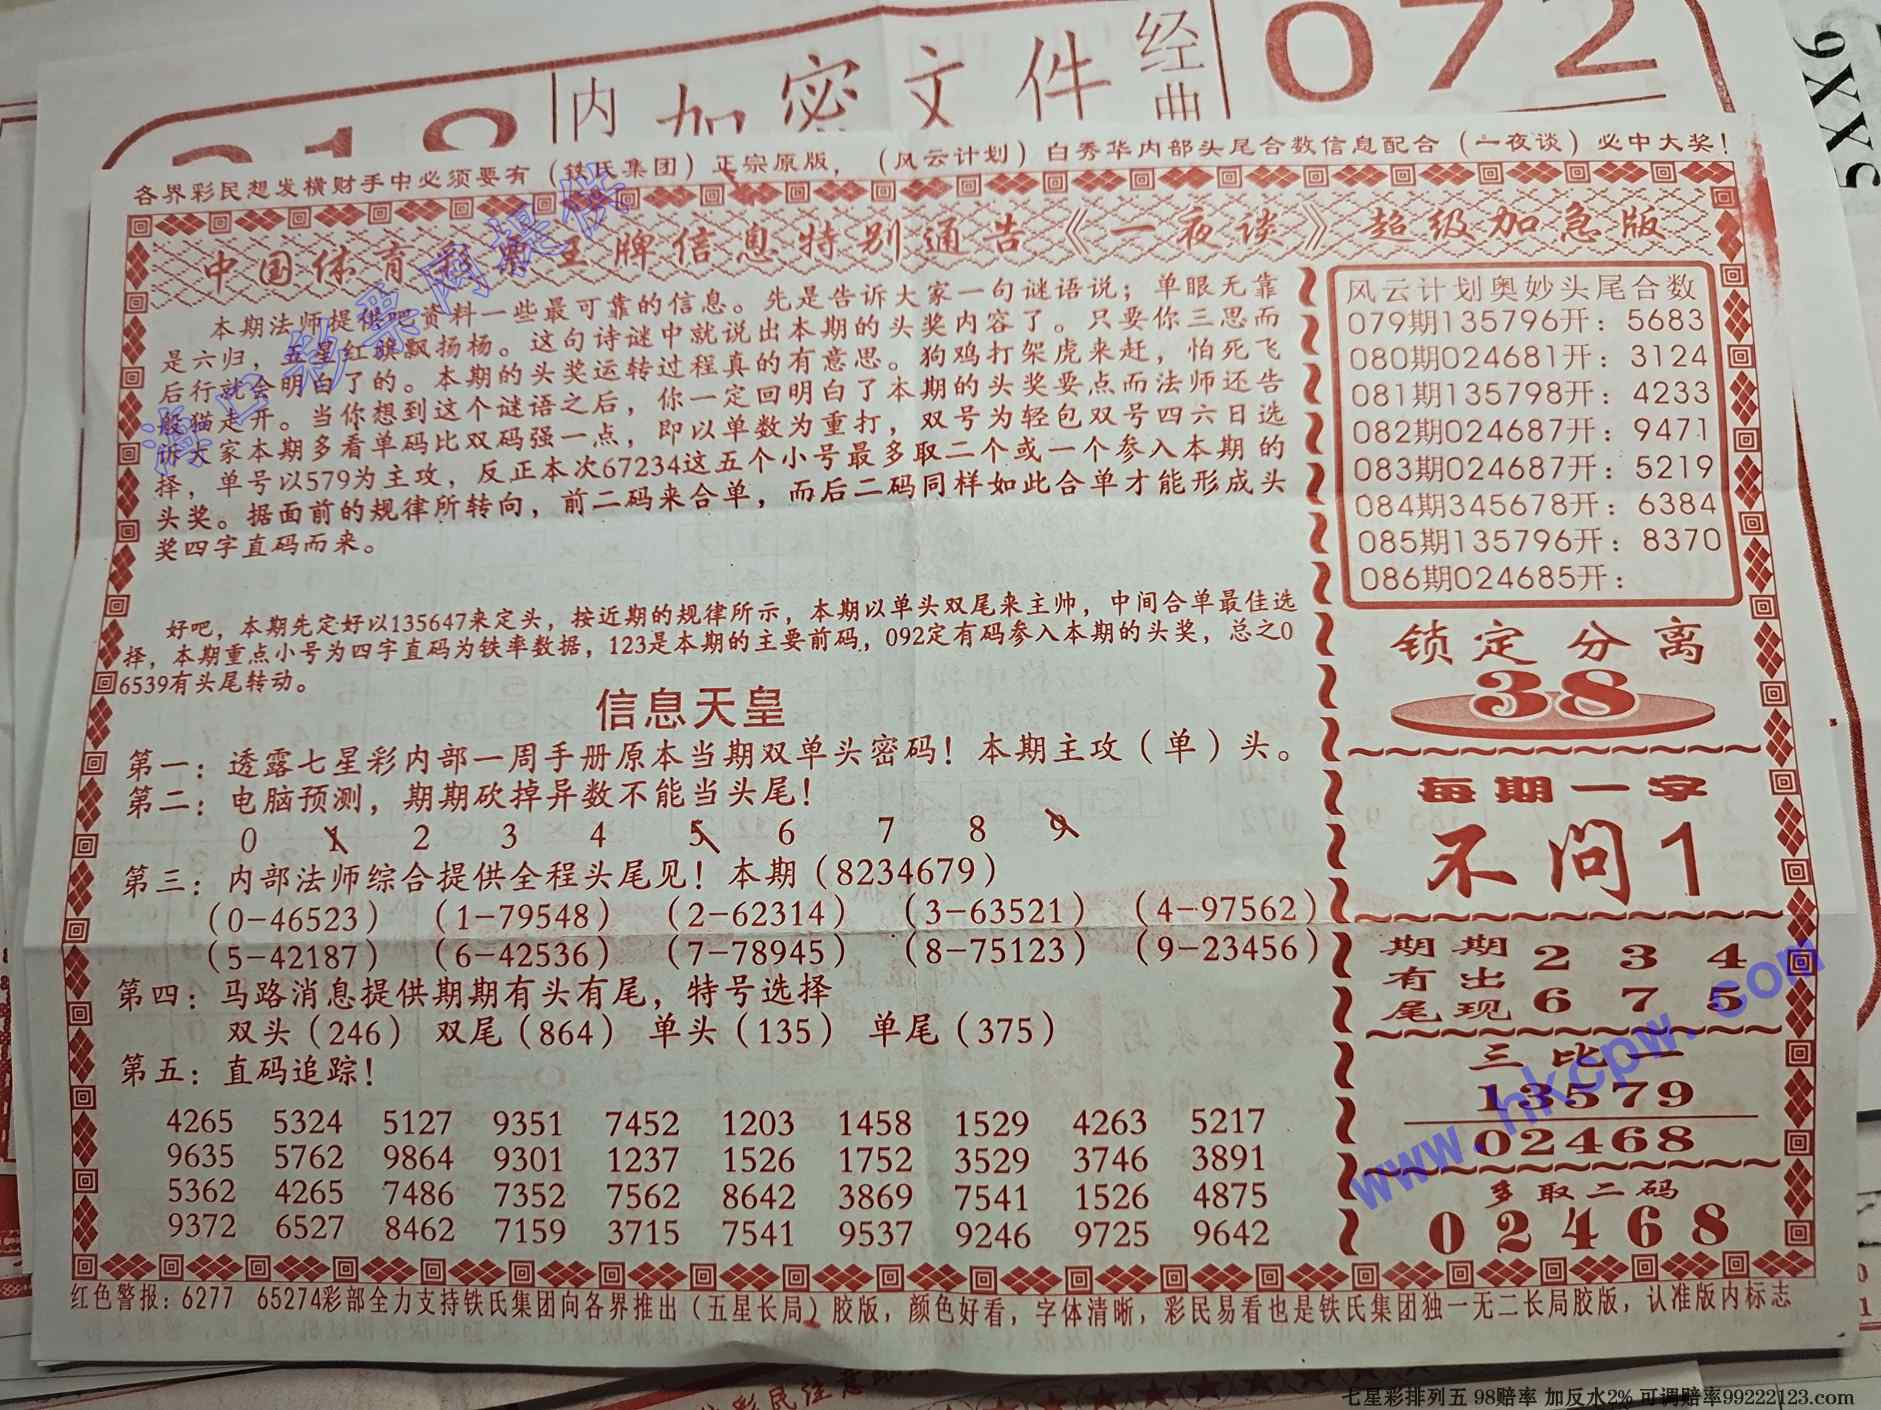 内
加密文件
经
曲
072
9XX5
各界彩民想发横财手中必须要有（铁氏集团）正宗原版，（风云计划）白秀华内部头尾合数信息配合（一夜谈）必中大奖！
中国体育彩票王牌信息特别通告《一夜谈》超级加急版
本期法师提供吧资料一些最可靠的信息。先是告诉大家一句谜语说；单眼无靠
是六归，五星红旗飘扬杨。这句诗谜中就说出本期的头奖内容了。只要你三思而
后行就会明白了的。本期的头奖运转过程真的有意思。狗鸡打架虎来赶，怕死飞
般猫走开。当你想到这个谜语之后，你一定回明白了本期的头奖要点而法师还告
诉大家本期多看单码比双码强一点，即以单数为重打，双号为轻包双号四六日选
择，单号以579为主攻，反正本次67234这五个小号最多取二个或一个参入本期的
头奖。据面前的规律所转向，前二码来合单，而后二码同样如此合单才能形成头
奖四字直码而来。
好吧，本期先定好以135647来定头，按近期的规律所示，本期以单头双尾来主帅，中间合单最佳选
择，本期重点小号为四字直码为铁率数据，123是本期的主要前码，092定有码参入本期的头奖，总之0
6539有头尾转动。
信息天皇
第一：透露七星彩内部一周手册原本当期双单头密码！本期主攻（单）头。
第二：电脑预测，期期砍掉异数不能当头尾！
0 1 2 3 4 5 6 7 8 9
第三：内部法师综合提供全程头尾见！本期（8234679）
（0-46523） （1-79548） （2-62314） （3-63521） （4-97562）
（5-42187） （6-42536） （7-78945） （8-75123） （9-23456）
第四：马路消息提供期期有头有尾，特号选择
双头（246） 双尾（864） 单头（135） 单尾（375）
第五：直码追踪！
4265 5324 5127 9351 7452 1203 1458 1529 4263 5217
9635 5762 9864 9301 1237 1526 1752 3529 3746 3891
5362 4265 7486 7352 7562 8642 3869 7541 1526 4875
9372 6527 8462 7159 3715 7541 9537 9246 9725 9642
风云计划奥妙头尾合数
079期135796开：5683
080期024681开：3124
081期135798开：4233
082期024687开：9471
083期024687开：5219
084期345678开：6384
085期135796开：8370
086期024685开：
锁定分离
38
每期一字
不问1
期期 2 3 4
有出
尾现 6 7 5
三比一
13579
02468
多取二码
02468
红色警报：6277 65274彩部全力支持铁氏集团向各界推出（五星长局）胶版，颜色好看，字体清晰，彩民易看也是铁氏集团独一无二长局胶版，认准版内标志
www.hkcpw.com
彩民注意
七星彩排列五 98赔率 加反水2% 可调赔率99222123.com